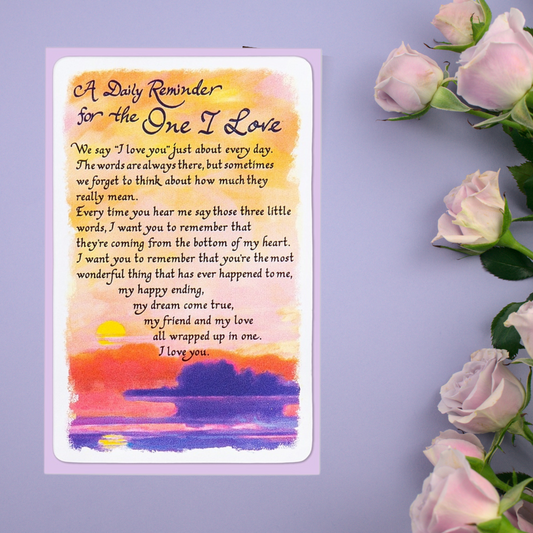 A Daily Reminder
for the One I Love
We say "I love you" just about every day.
The words are always there, but sometimes
we forget to think about how much they
really mean.
Every time you hear me say those three little
words, I want you to remember that
they're coming from the bottom of my heart.
I want you to remember that you're the most
wonderful thing that has ever happened to me,
my happy ending,
my dream come true,
my friend and my love
all wrapped up in one.
I love you.